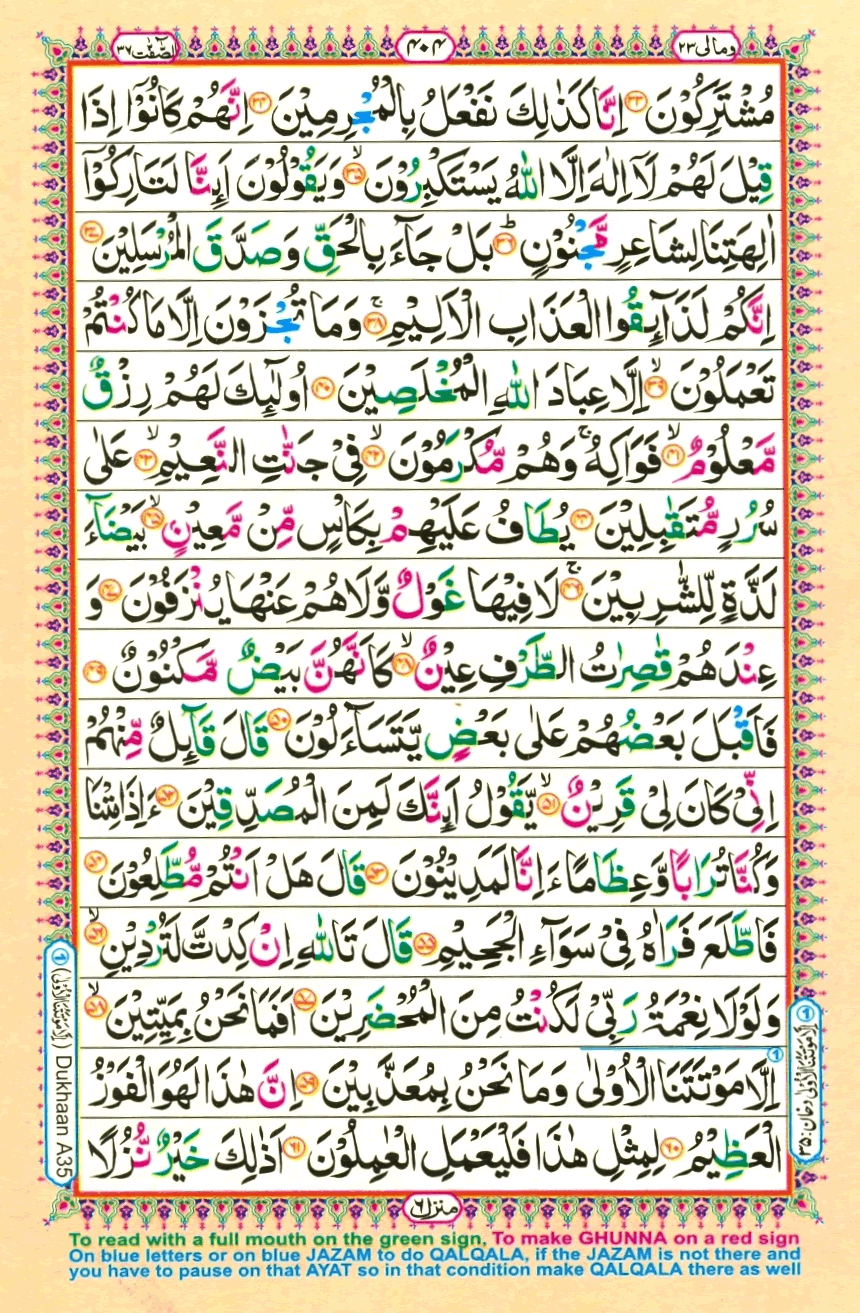 ومالی ۲۳
۴۰۴
الصّٰفّٰت ۳۷
مُشْتَرِكُوْنَ ۳۳ اِنَّا كَذٰلِكَ نَفْعَلُ بِالْمُجْرِمِيْنَ ۳۴ اِنَّهُمْ كَانُوْۤا اِذَا
قِيْلَ لَهُمْ لَاۤ اِلٰهَ اِلَّا اللّٰهُ يَسْتَكْبِرُوْنَ ۙ۳۵ وَيَقُوْلُوْنَ اَىِٕنَّا لَتَارِكُوْۤا
اٰلِهَتِنَا لِشَاعِرٍ مَّجْنُوْنٍ ؕ۳۶ بَلْ جَآءَ بِالْحَقِّ وَصَدَّقَ الْمُرْسَلِيْنَ ۳۷
اِنَّكُمْ لَذَآىِٕقُوا الْعَذَابِ الْاَلِيْمِ ۚ۳۸ وَمَا تُجْزَوْنَ اِلَّا مَا كُنْتُمْ
تَعْمَلُوْنَ ۙ۳۹ اِلَّا عِبَادَ اللّٰهِ الْمُخْلَصِيْنَ ۴۰ اُولٰٓىِٕكَ لَهُمْ رِزْقٌ
مَّعْلُوْمٌ ۙ۴۱ فَوَاكِهُ ۚ وَهُمْ مُّكْرَمُوْنَ ۙ۴۲ فِيْ جَنّٰتِ النَّعِيْمِ ۙ۴۳ عَلٰى
سُرُرٍ مُّتَقٰبِلِيْنَ ۴۴ يُطَافُ عَلَيْهِمْ بِكَاْسٍ مِّنْ مَّعِيْنٍ ۙ۴۵ بَيْضَآءَ
لَذَّةٍ لِّلشّٰرِبِيْنَ ۚ۴۶ لَا فِيْهَا غَوْلٌ وَّلَا هُمْ عَنْهَا يُنْزَفُوْنَ ۴۷ وَ
عِنْدَهُمْ قٰصِرٰتُ الطَّرْفِ عِيْنٌ ۙ۴۸ كَاَنَّهُنَّ بَيْضٌ مَّكْنُوْنٌ ۴۹
فَاَقْبَلَ بَعْضُهُمْ عَلٰى بَعْضٍ يَّتَسَآءَلُوْنَ ۵۰ قَالَ قَآىِٕلٌ مِّنْهُمْ
اِنِّيْ كَانَ لِيْ قَرِيْنٌ ۙ۵۱ يَّقُوْلُ اَىِٕنَّكَ لَمِنَ الْمُصَدِّقِيْنَ ۵۲ ءَاِذَا مِتْنَا
وَكُنَّا تُرَابًا وَّعِظَامًا ءَاِنَّا لَمَدِيْنُوْنَ ۵۳ قَالَ هَلْ اَنْتُمْ مُّطَّلِعُوْنَ ۵۴
فَاطَّلَعَ فَرَاٰهُ فِيْ سَوَآءِ الْجَحِيْمِ ۵۵ قَالَ تَاللّٰهِ اِنْ كِدْتَّ لَتُرْدِيْنِ ۙ۵۶
وَلَوْلَا نِعْمَةُ رَبِّيْ لَكُنْتُ مِنَ الْمُحْضَرِيْنَ ۵۷ اَفَمَا نَحْنُ بِمَيِّتِيْنَ ۙ۵۸
اِلَّا مَوْتَتَنَا الْاُوْلٰى وَمَا نَحْنُ بِمُعَذَّبِيْنَ ۵۹ اِنَّ هٰذَا لَهُوَ الْفَوْزُ
الْعَظِيْمُ ۶۰ لِمِثْلِ هٰذَا فَلْيَعْمَلِ الْعٰمِلُوْنَ ۶۱ اَذٰلِكَ خَيْرٌ نُّزُلًا
① اِلَّا مَوْتَتَنَا الْاُوْلٰى دخان : ۳۵
① (اِلَّا مَوْتَتُنَا الْاُوْلٰى) Dukhaan A35
منزل ۶
To read with a full mouth on the green sign, To make GHUNNA on a red sign
On blue letters or on blue JAZAM to do QALQALA, if the JAZAM is not there and
you have to pause on that AYAT so in that condition make QALQALA there as well